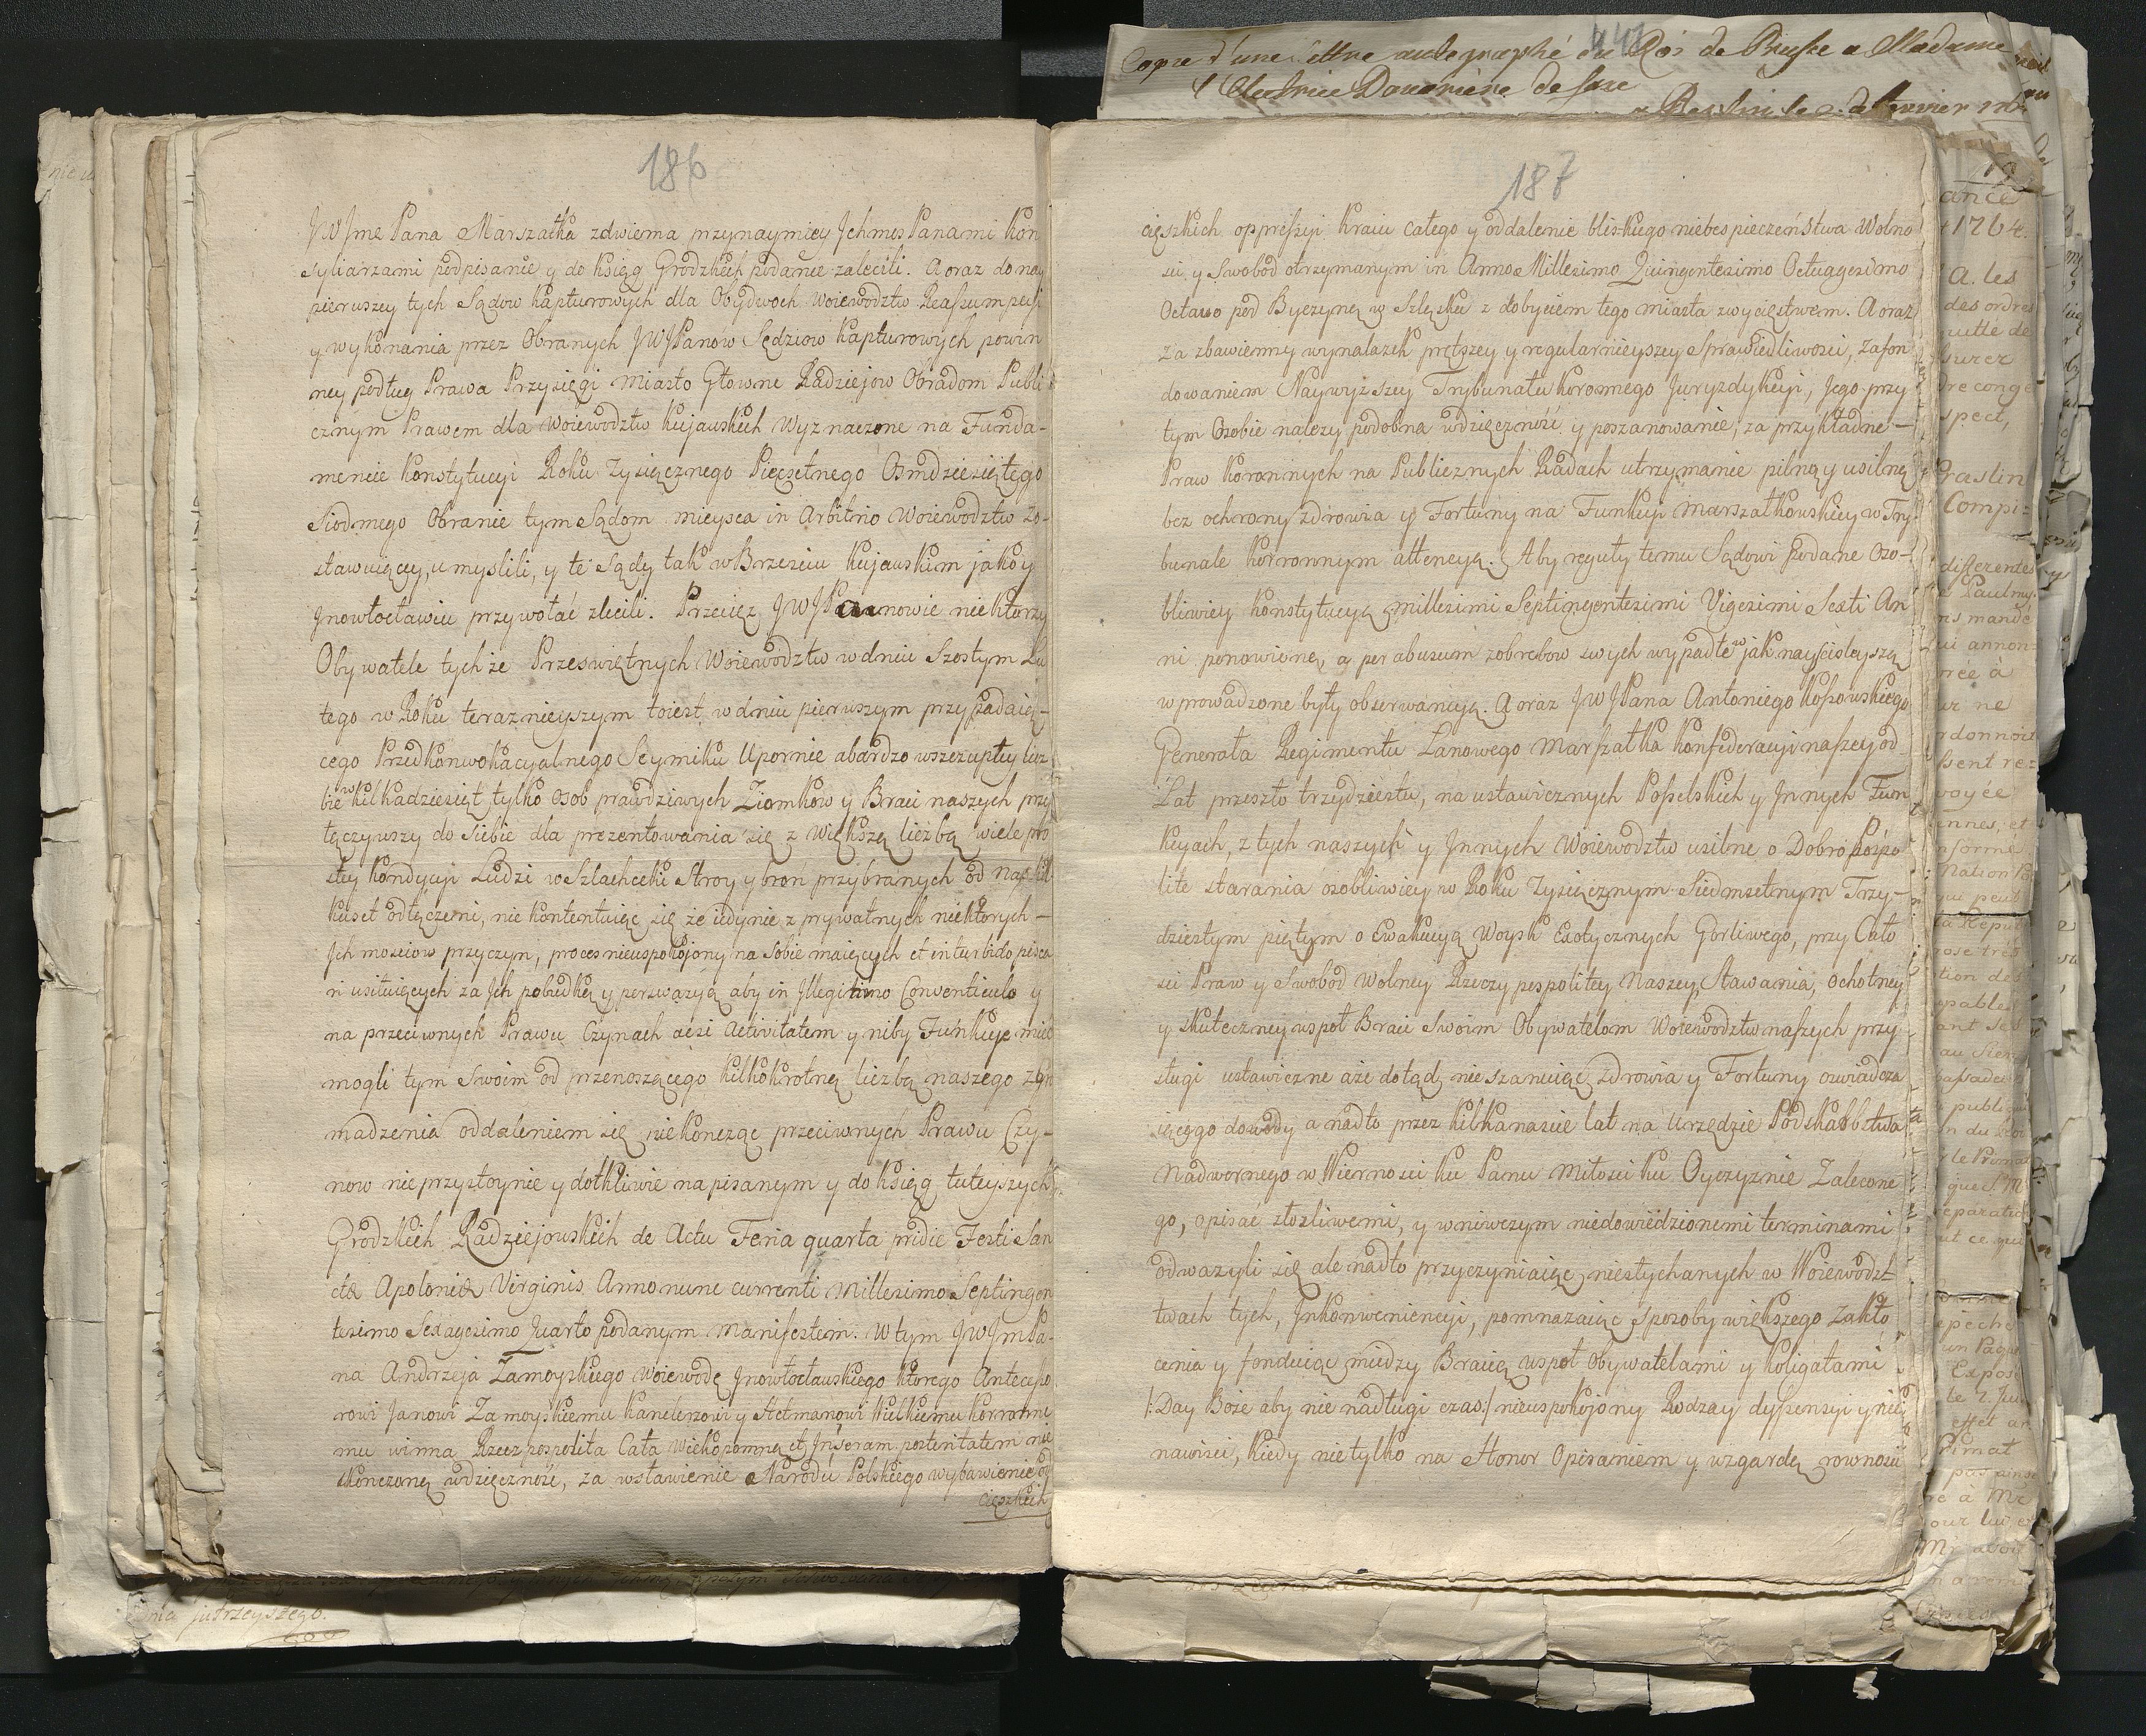 186
JWJme Pana Marszałka zdwiema przynaymiey Jchmes Panami Kon
syliarzami podpisanie y do ksiąg Grodzkich podanie zalecili. A oraz do nay
pierwszey tych Sądow kapturowych dla Obydwoch Woiewodztw Reassumpcyi
y wykonania przez Obranych JWJPanow Sędziow kapturowych powin
ney podług Prawa Przysięgi miasto Głowne Radziejow Obradom Publi
cznym Prawem dla Woiewodztw kujauskich Wyznaczone na Funda-
mencie konstytucyi Roku Tysiącznego Pięcsetnego Osmdziesiątego
Siodmego Obranie tym Sądom mieysca in Arbitrio Woiewodztw Zo-
stawuiącey, umyslili, y te Sądy tak w Brzesciu kujauskim jako y
Jnowłocławiu przywołać zlecili. Przecięz JWJPanowie niektorzy
Obywatele tychże Przeswiętnych Woiewodztw w dniu Szostym Lu
tego w Roku teraznieyszym toiest w dniu pierwszym przypadaią-
cego Przedkonwokacyalnego Seymiku Upornie abardzo wszczupłey licz
bie w kilkadziesiąt tylko osob prawdziwych Ziomkow y Braci naszych przy
łączywszy do Siebie dla prezentowania się z większą liczbą wiele pro
stey kondycyi Ludzi w Szlachecki Stroy y bron przybranych od nas kil
kuset odłączeni, nie kontentuiąc się że iedynie z prywatnych niektorych-
Jch mosciow przyczyn, proces nieuspokojony na sobie maiących et in turbido pisca
ri usituiących za Jch pobudką y perswazyą aby in Jllegitimo Conventiculo y
na przeciwnych Prawu Czynach acsi activitatem y niby Funkcye mieć
mogli tym Swoim od przenoszącego kilkokrotną liczbą naszego zgro
madzenia oddaleniem się niekończąc przeciwnych Prawu Czy-
now nieprzystoynie y dotkliwie napisanym y do ksiąg tuteyszych
Grodzkich Radziejowskich de Actu Feria quarta pridie Festi San
ctæ Apoloniæ Virginis Anno nunc currenti Millesimo Septingen
tesimo Sexagesimo Quarto podanym manifestem. W tym JWJmPa-
na Andrzeja Zamoyskiego Woiewodę Jnowłocławskiego ktorego Antecesso
rowi Janowi Zamoyskiemu kanclerzowi y Hetmanowi Wielkiemu korronne
mu winna Rzecz pospolita Cała wiekopomną et Jnseram posteritatem nie
skonczoną wdzięczność, za wstawienie Narodu Polskiego wybawienie od
cięszkich
187
cięszkich oppressyi kraiu całego y oddalenie bliskiego niebespieczeństwa Wolno
sci y Swobod otrzymanym in Anno Millesimo Quingentesimo Octuagesimo
Octavo pod Byczyną w Szląsku z dobyciem tego miasta zwycięstwem. A oraz
Za zbawienny wynalazek prętszey y regularnieyszey Sprawiedliwosci, Zafon
dowaniem Naywyższey Trybunału koronnego Juryzdykcyi, Jego przy
tym Osobie nalezy podobna wdzięczność y poszanowanie, za przykładne-
Praw koronnych na Publicznych Radach utrzymanie pilną y usilną
bez ochrony zdrowia y Fortuny na Funkcyi Marszałkowskiey w Try
bunale korronnym attencyą. Aby reguły temu Sądowi podane Oso-
bliwiey konstytucyą millesimi Septingentesimi Vigesimi Sexti An
ni ponowione, a per abusum zobrębow swych wypadłe w jak nayscisleyszą
wprowadzone były obserwancyą. A oraz JWJPana Antoniego kossowskiego
Generała Regimentu Lanowego Marszałka konfederacyi naszey od
Lat przeszło trzydziestu, na ustawicznych Poselskich y Jnnych Fun
kcyach, z tych naszych y Jnnych Woiewodztw usilne o Dobro Pospo
lite starania osobliwiey w Roku Tysiącznym Siedmsetnym Trzy-
dziestym piątym o Ewakucyą Woysk Exotycznych Gorliwego, przy Cało
sci Praw y Swobod Wolney Rzeczy pospolitey Naszey Stawania, ochotney
y skuteczney wspoł Braci Swoim Obywatelom Woiewodztw naszych przy
sługi ustawiczne aże dotąd nieszanuiąc Zdrowia y Fortuny oswiadcza
iącego dowody a nadto przez kilkanascie lat na Urzędzie Podskarbstwa
Nadwornego w Wiernosci ku Panu Miłosci ku Oyczyznie Zalecone
go, opisać złosliwemi, y wniwczym niedowiedzionemi terminami
odwazyli się ale nadto przyczyniaiąc niesłychanych w Woiewodzt
twach tych, Jnkonweniencyi, pomnazaiąc Sposoby większego Zakłó
cenia y fonduiąc między Bracią wspoł Obywatelami y koligatami
/: Day Boże aby nie nadługi czas :/ nieuspokojony Rodzay dyssensyi y nie
nawisci, kiedy nie tylko na Honor Opisaniem y wzgardą rownosci
447
Copie d'une lettre autographé du Roi de Prusse a Madame
l'Electrice Douariere de Saxe
a Berlin le
1764.
A. les
des ordres
spect,
Praslin
differentes
Paulmy.
ordonnoit
voyée
Nation
qui peut
tion des
publique
le Primat
ut ce qui
un Paque
effet
Primat
nia jutrzeyszego.